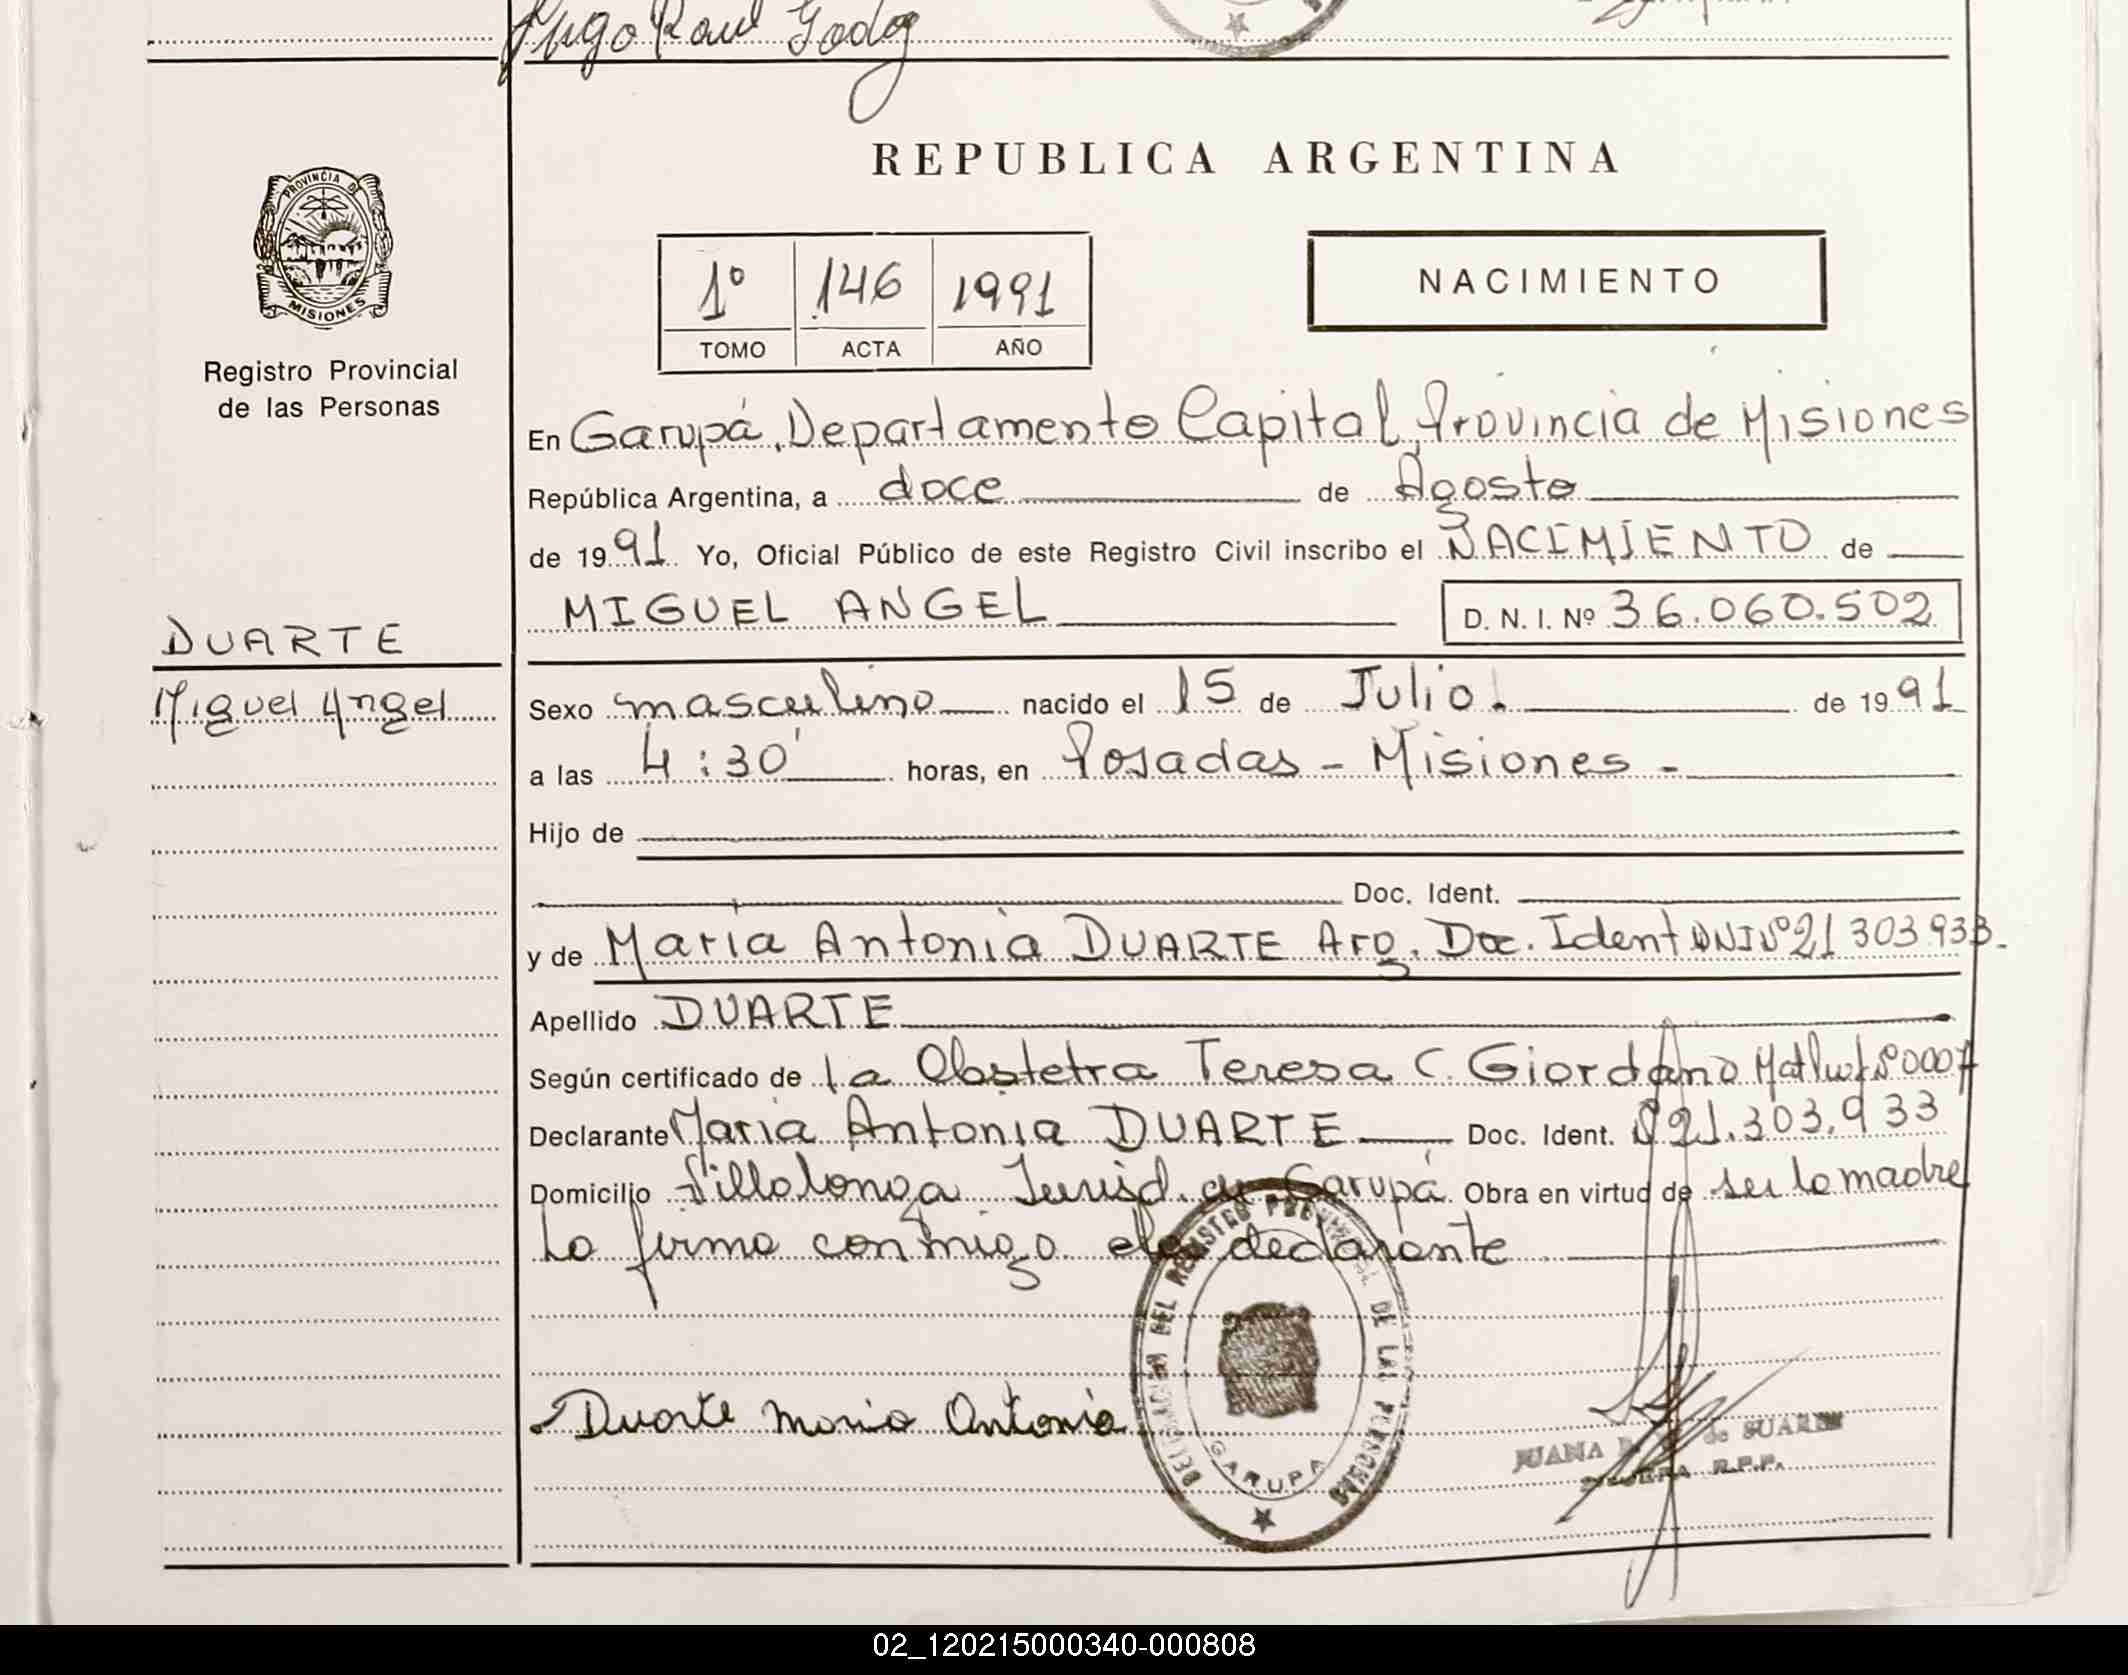 Hugo Raul Godoy
REPUBLICA ARGENTINA
PROVINCIA DE
MISIONES
Registro Provincial
de las Personas
1º 146 1991
TOMO ACTA AÑO
NACIMIENTO
En Garupá, Departamento Capital, Provincia de Misiones
República Argentina, a doce de Agosto
de 1991 Yo, Oficial Público de este Registro Civil inscribo el NACIMIENTO de
MIGUEL ANGEL D. N. I. Nº 36.060.502
DUARTE
Miguel Angel
Sexo masculino nacido el 15 de Julio. de 1991
a las 4:30' horas, en Posadas - Misiones -
Hijo de
Doc. Ident.
y de Maria Antonia DUARTE Arg. Doc. Ident DNI Nº 21 303 933.
Apellido DUARTE
Según certificado de la Obstetra Teresa C. Giordano
Declarante Maria Antonia DUARTE Doc. Ident. 21.303.933
Domicilio Villalonga Jurisd. de Garupá. Obra en virtud de ser la madre
La firma conmigo declarante
DELEGACION DEL REGISTRO PROVINCIAL DE LAS PERSONAS
GARUPA
Duarte Maria Antonia
JUANA de SUAREZ
R.P.P.
02_120215000340-000808